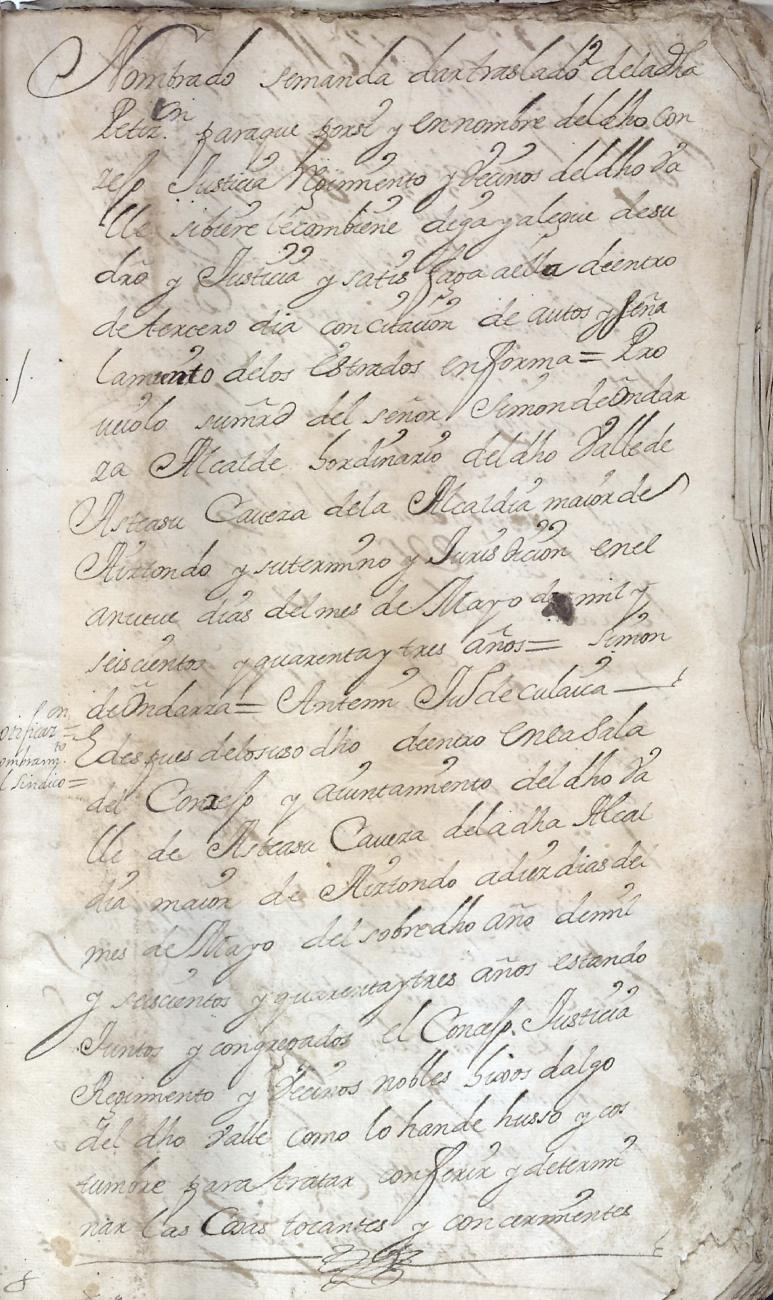 Nombrado semanda dar traslado de la dha
Petiz.on para que por si y en nombre del dho con
zejo Justicia Regimiento y Vecinos del dho Va
lle si biere le combiene diga y alegue de su
dro y Justicia y satisfaga a ella deentro
de tercero dia con citacion de autos y seña
lamiento de los Estrados en forma = Pro
veiolo sumrd del señor Simon de Ondar
za Alcalde hordinario del dho Valle de
Asteasu Caveza de la Alcaldia maior de
Aiztondo y su termino y Jurisdicion en el
a nueve dias del mes de Mayo de mil y
seiscientos y quarenta y tres años = Simon
de Ondarza = Antemi Ju.o de culaica —
E despues de lo suso dho deentro en la Sala
del Conzejo y aiuntamiento del dho Va
lle de Asteasu Caveza de la dha Alcal
dia maior de Aiztondo a diez dias del
mes de Mayo del sobre dho año de mil
y seiscientos y quarenta y tres años estando
Juntos y congregados el Concejo Justicia
Regimiento y Vecinos nobles hixos dalgo
del dho Valle como lo han de husso y cos
tumbre para tratar conferir y determi
nar las Cosas tocantes y concernientes
otificaz.on =
ombram.to
l sindico =
8